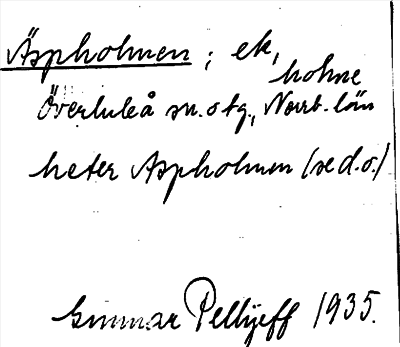 Äspholmen; ek,
holme
Överluleå sn. o tg., Norrb. län
heter Aspholmen (se d.o.)
Gunnar Pellijeff 1935.